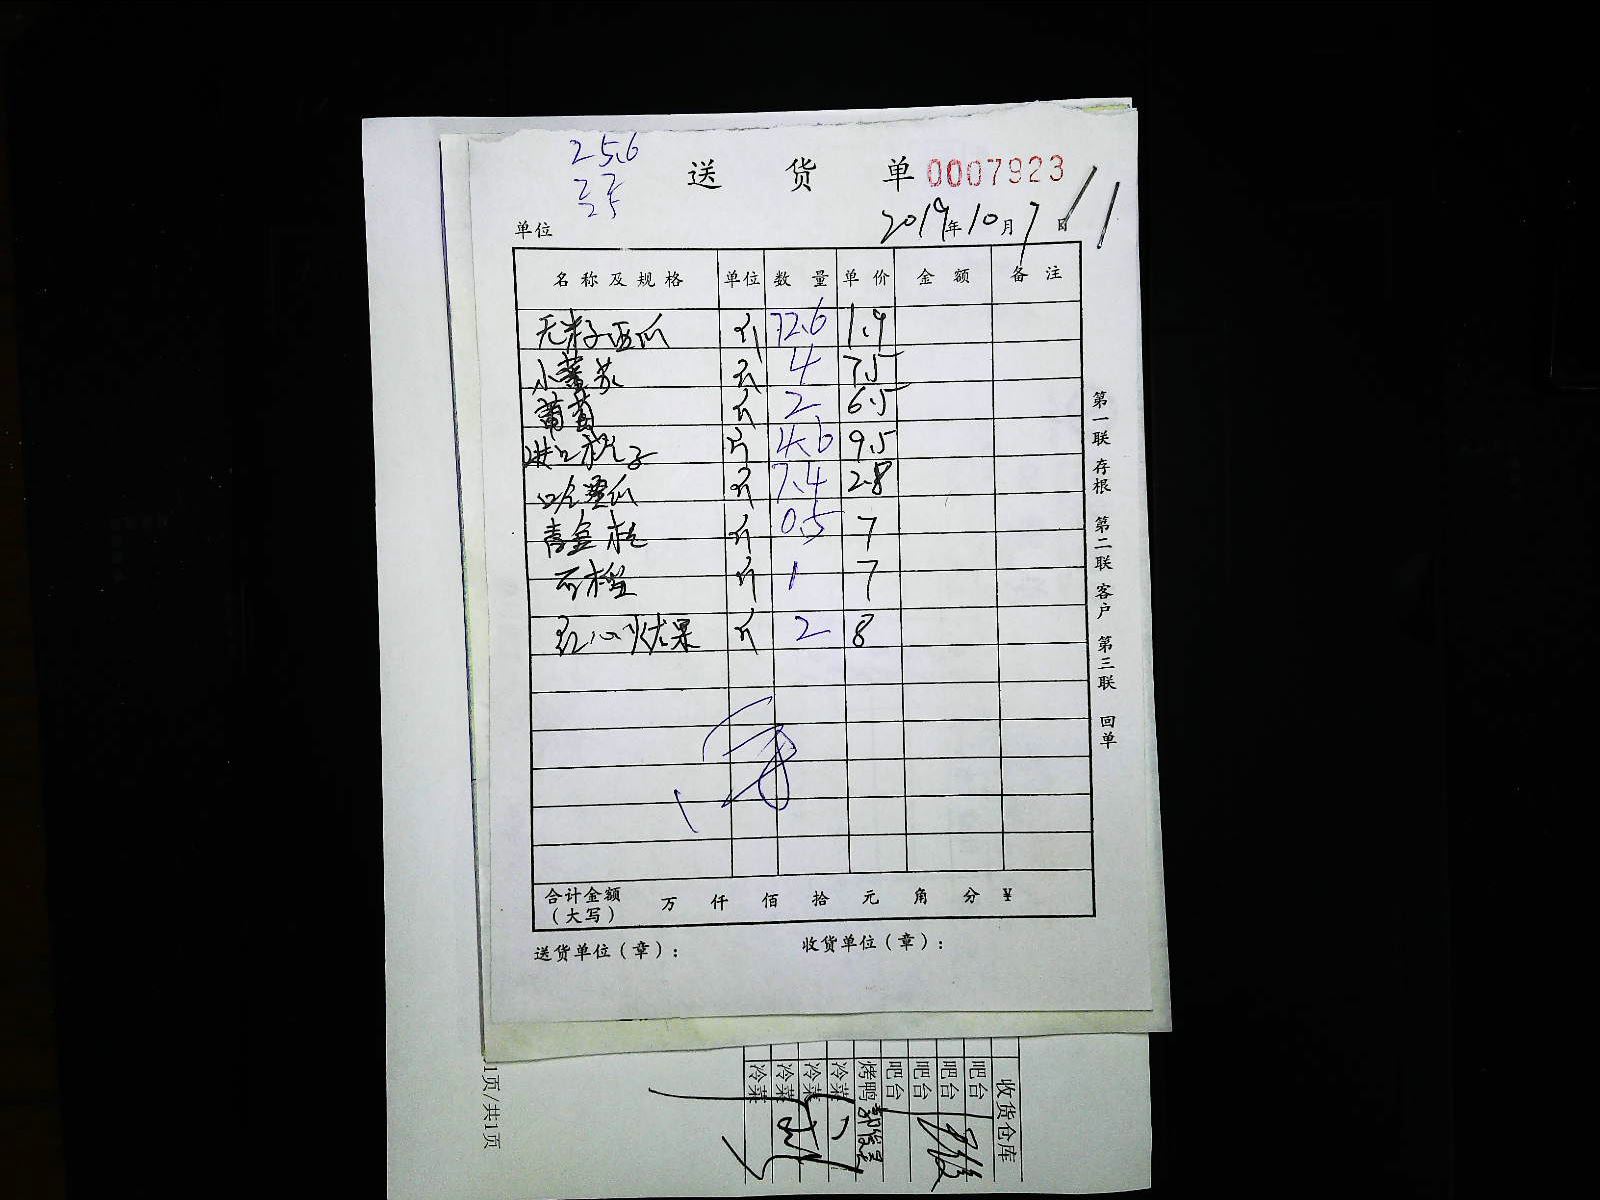 25.6
送 货 单 0007923
2019年10月7日
单位
名称及规格 单位 数量 单价 金额 备注
无籽西瓜 斤 72.6 1.9
小番茄 斤 4 7.5
葡萄 斤 2 6.5
进口橙子 斤 4.6 9.5
哈密瓜 斤 7.4 2.8
青金桔 斤 0.5 7
斤 1 7
红心火龙果 斤 2 8
合计金额(大写) 万 仟 佰 拾 元 角 分 ¥
送货单位(章): 收货单位(章):
第一联 存根 第二联 客户 第三联 回单
收货仓库
吧台
吧台
吧台
吧台
烤鸭
冷菜
冷菜
冷菜
冷菜
1页/共1页